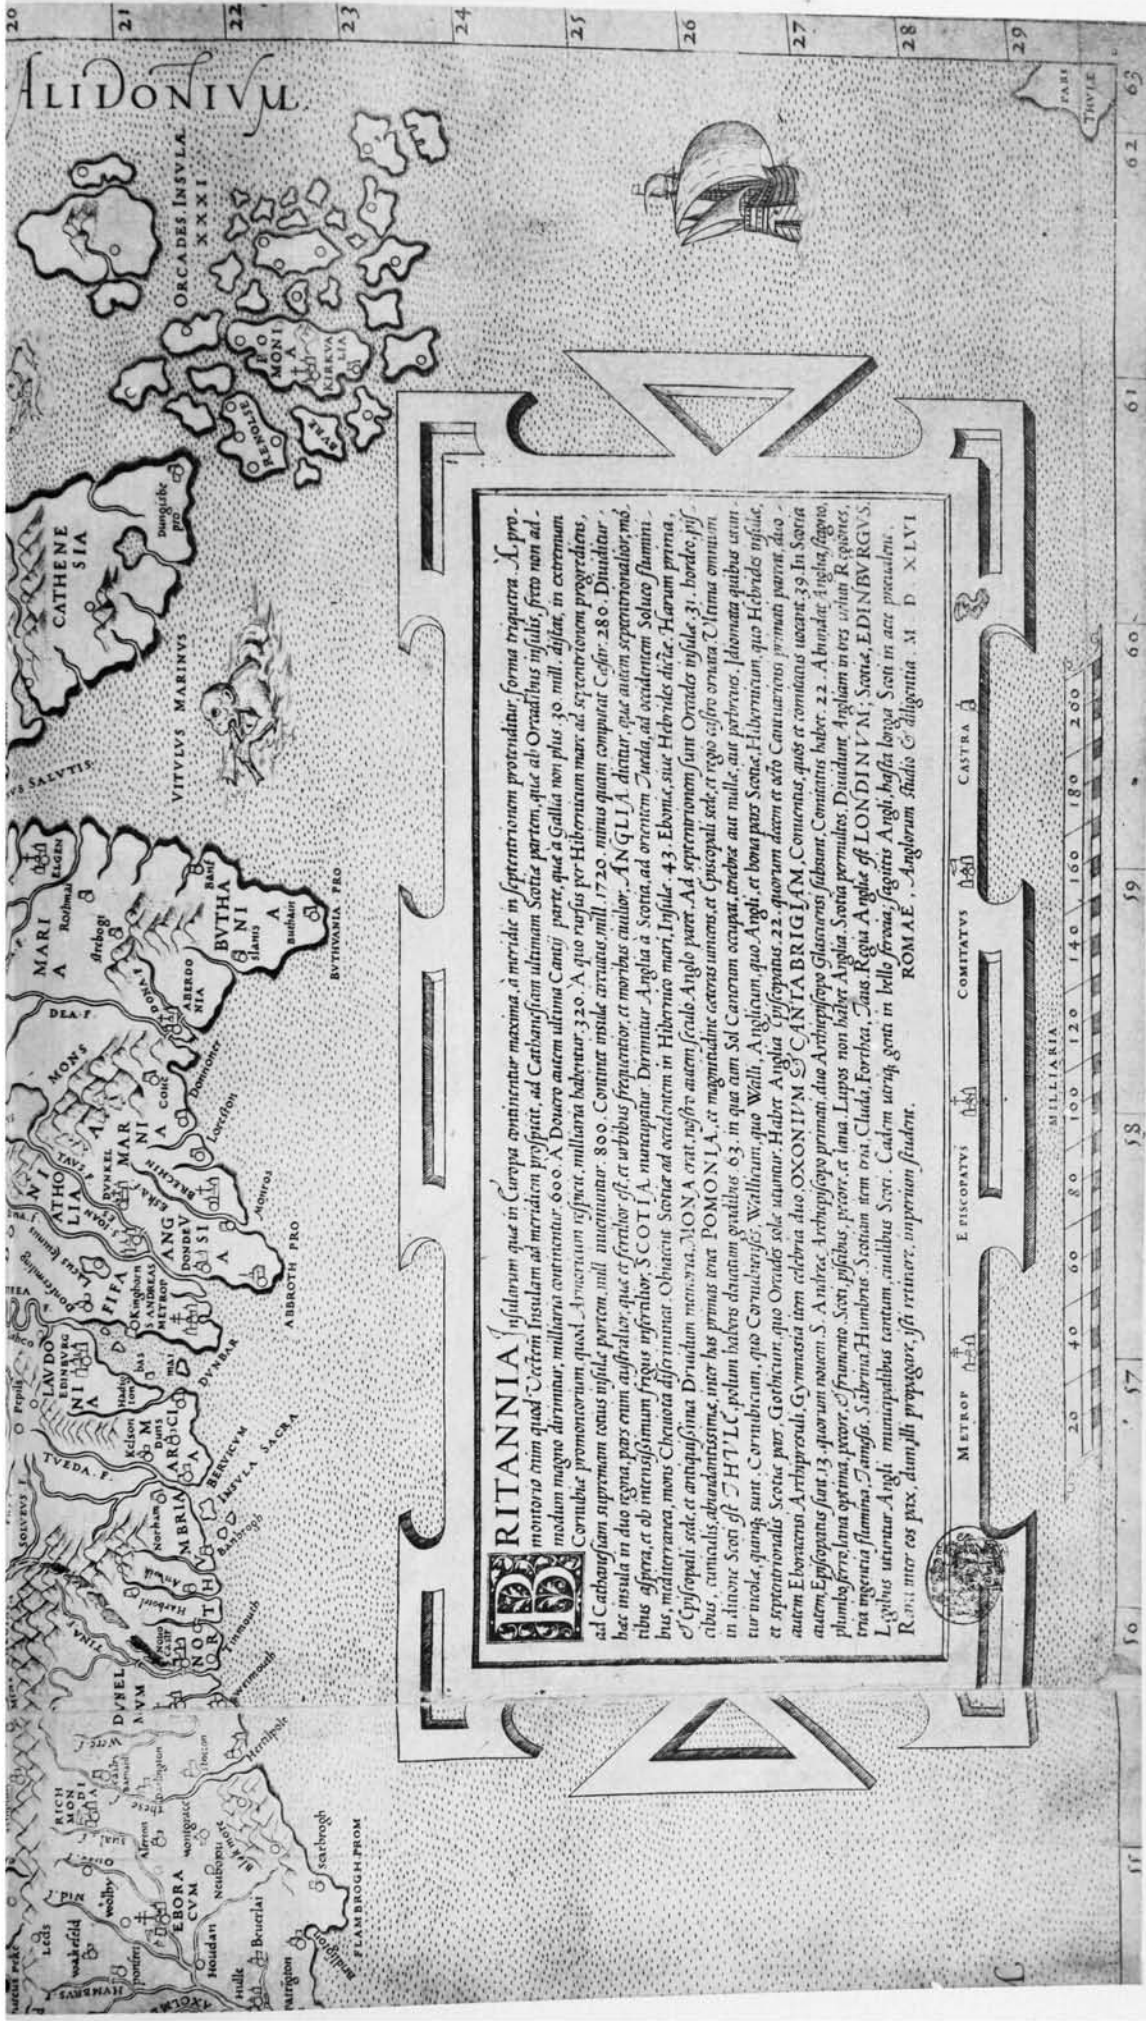 ALIDONIVM
ORCADES. INSVLÆ
XXXI
PO
MONI
A
KIRKVA
LIA
CATHENE
SIA
Dungisbe
pro
VITVLVS MARINVS
VS SALVTIS
MARI
A
Rothmai
ELGEN
BVTHA
NI
A
Banf
slanis
Buthant
BVTHVANIA PRO
ABERDO
NIA
DONA F
DEA. F.
MONS
MAR
NI
A
Couc
ATHO
LIA
DVNKEL
BRECHIN
Eska f
Monros
ANG
DONDEV
SI
A
ABBROTH PRO
Lacus leuinus
FIFA
Kinghorn
S. ANDREAS
METROP
LAVDO
EDINBVRG
NI
A
bas
mai
DVNBAR
Kelson
M
Duns
AR CI
A
TVEDA. F.
BERVICVM
INSVLA SACRA
Banbrogh
Norham
Anwik
NORTHVMBRIA
SOLVEVS F.
TINA F
Tinmouth
DVNEL
MVM
Hertilpole
RICH
MON
DI
A
montgrace
Blakmore
EBORA
CVM
scarbrogh
FLAMBROGH. PROM
bridligton
Leds
wakefeld
Houdan
Beuerlai
Hulle
Patrigton
HVMBRVS
PARS
THVLE
BRITANNIA Insularum quæ in Europa continentur maxima, à meridie in septentrionem protenditur, forma triquetra. A pro-
montorio enim quod Vectem Insulam ad meridiem prospicit, ad Cathanesiam ultimam Scotiæ partem, quæ ab Orcadibus insulis, freto non ad-
modum magno dirimitur, milliaria continentur. 600. A Douero autem ultima Cantij parte, quæ a Gallia non plus 30. mill. distat, in extremum
Cornubiæ promontorium, quod Armoricum respicit, milliaria habentur. 320. A quo rursus per Hibernicum mare ad septentrionem progrediens,
ad Cathanesiam supremam totius insulæ partem, mill. inueniuntur. 800. Continet insulæ circuitus, mill. 1720. minus quam computat Cesar. 280. Diuiditur
hæc insula in duo regna, pars enim australior, quæ et fertilior est, et urbibus frequentior, et moribus cuilior, ANGLIA dicitur, quæ autem septentrionalior, mō-
tibus aspera, et ob intensissimum frigus infertilior, SCOTIA nuncupatur. Dirimitur Anglia à Scotia, ad orientem Tueda, ad occidentem Solueo flumini-
bus, mediterranea, mons Cheuiota disterminat. Obiacent Scotiæ ad occidentem in Hibernico mari, Insulæ. 43. Ebonæ, siue Hebrides dictæ. Harum prima,
& Episcopali sede, et antiquissima Druidum memoria, MONA erat, nostro autem seculo Anglo paret. Ad septentrionem sunt Orcades insulæ 31. hordeo, pis-
cibus, cuniculis, abundantissimæ, inter has primas tenet POMONIA, et magnitudine cæteras uincens, et Episcopali sede, et regio castro ornata. Ultima omnium
in ditione Scoti est THVLE, polum habens eleuatum gradibus 63. in qua cum Sol Cancrum occupat, tenebræ aut nullæ, aut perbreues. Idiomata quibus utun-
tur incolæ, quinq; sunt. Cornubicum, quo Cornubienses, Wallicum, quo Walli, Anglicum, quo Angli, et bona pars Scotiæ, Hibernicum, quo Hebrides insulæ,
et septentrionalis Scotiæ pars, Gothicum, quo Orcades solæ utuntur. Habet Anglia Episcopatus 22. quorum decem et octo Cantuariensi primati parent, duo
autem Eboracensi Archipresuli, Gymnasia item celebria duo, OXONIVM & CANTABRIGIAM, Conuentus, quos et comitatus uocant. 39. In Scotia
autem, Episcopatus sunt. 13. quorum nouem S. Andreæ Archiepiscopo primati, duo Archiepiscopo Glascuensi subsunt, Comitatus habet. 22. Abundat Anglia stagno,
plumbo, ferro, lana optima, pecore, & frumento. Scoti, piscibus, pecore, et lana. Lupos non habet Anglia, Scotia permultos. Diuidunt Angliam in tres ueluti Regiones,
tria ingentia flumina, Tamesis, Sabrina, Humbrus. Scotiam item tria, Cluda, Forthea, Taus. Regia Angliæ est LONDINVM; Scotiæ, EDINBVRGVS.
Legibus utuntur Angli municipalibus tantum, ciuilibus Scoti. Eadem utriq; genti in bello ferocia, sagittis Angli, hasta longa Scoti in acie præualent
Rarus inter eos pax, dum illi propagare, isti retinere, imperium student. ROMAE, Anglorum studio & diligentia M D XLVI
METROP
EPISCOPATVS
COMITATVS
CASTRA
MILLIARIA
20 40 60 80 100 120 140 160 180 200
20 21 22 23 24 25 26 27 28 29
55 56 57 58 59 60 61 62 63